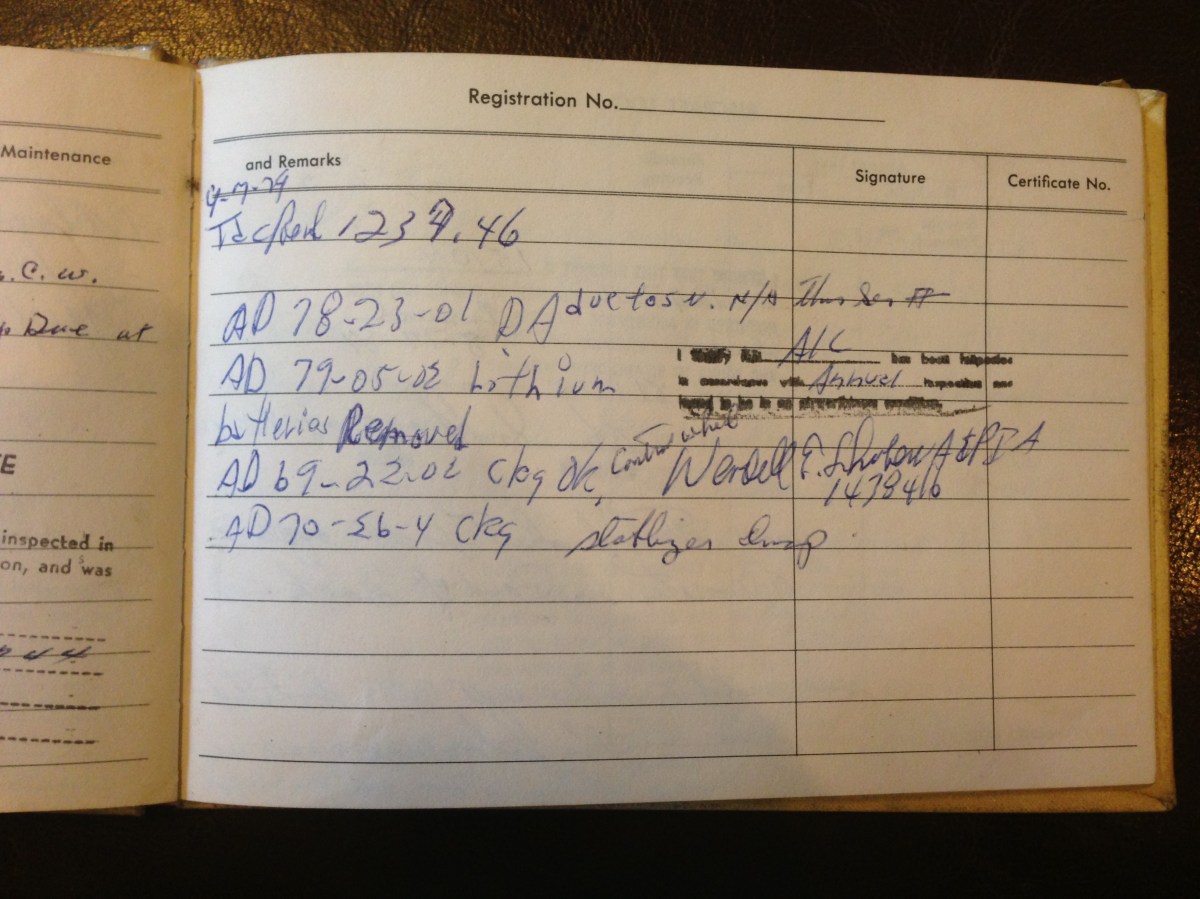 Maintenance
. C. w.
Due at
E
inspected in
on, and was
Registration No.
and Remarks
Signature
Certificate No.
4-7-79
Tac/Red 1234.46
AD 78-23-01 DA due to s N. N/A This Ser #
AD 79-05-02 Lithium
batteries Removed
I certify this A/C has been inspected
in accordance with Annual inspection and
found to be in an airworthiness condition.
AD 69-22-02 ckg ok, Control wheel
Wendell E. A&P IA
1478416
AD 70-26-4 ckg stablizer